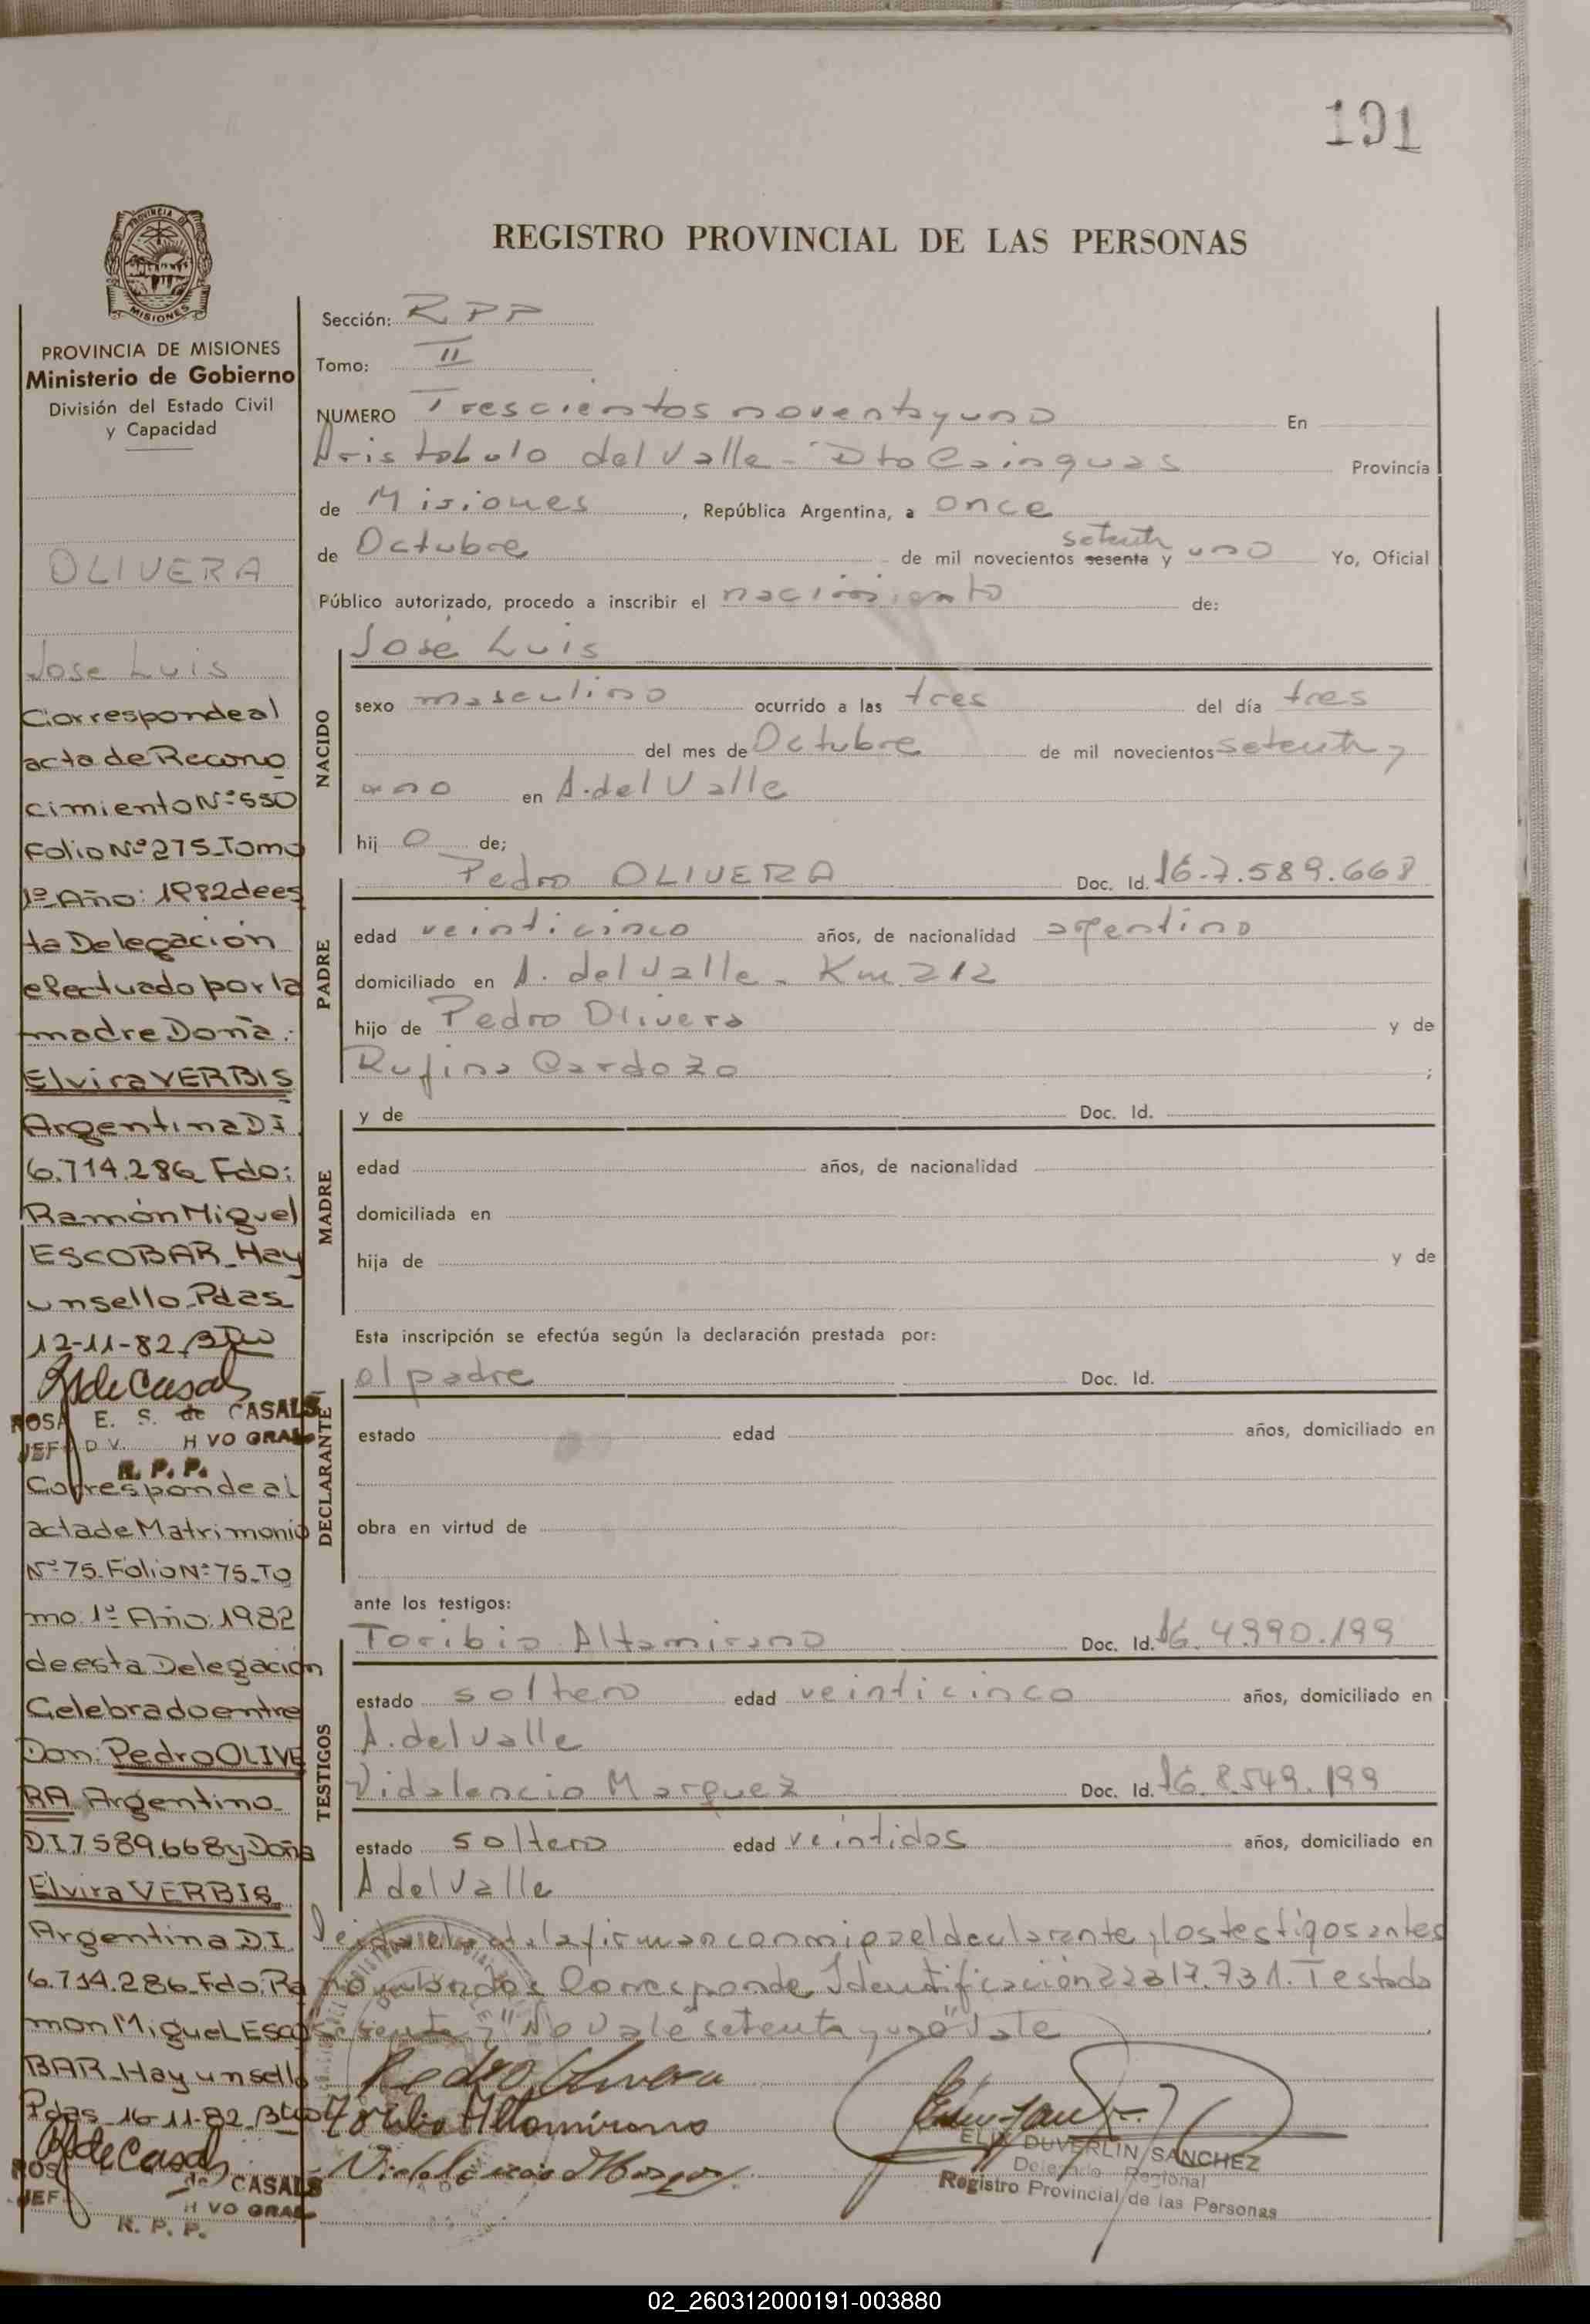 191
PROVINCIA DE
MISIONES
PROVINCIA DE MISIONES
Ministerio de Gobierno
División del Estado Civil
y Capacidad
OLIVERA
Jose Luis
Corresponde al
acta de Recono
cimiento Nº 550
Folio Nº 275_Tomo
1º Año: 1982 de es
ta Delegación
efectuado por la
madre Doña:
Elvira VERBIS
Argentina D I
6.714.286 Fdo:
Ramón Miguel
ESCOBAR_Hay
un sello_Pdas
12-11-82
ROSA E. S. de CASALS
JEF DV H VO GRAL
R. P. P.
Corresponde al
acta de Matrimonio
Nº 75_Folio Nº 75_To
mo 1º Año: 1982
de esta Delegación
Celebrado entre
Don: Pedro OLIVE
RA Argentino
D.I.7.589.668 y Doña
Elvira VERBIS
Argentina D I
6.714.286_Fdo: Ra
mon Miguel Esco
BAR_Hay un sello
Pdas_16-11-82
ROS de CASALS
JEF H VO GRAL
R. P. P.
REGISTRO PROVINCIAL DE LAS PERSONAS
Sección: RPP
Tomo: II
NUMERO Trescientos noventa y uno En
Aristobulo del Valle - Dto Cainguas Provincia
de Misiones, República Argentina, a once
de Octubre de mil novecientos sesenta y setenta uno Yo, Oficial
Público autorizado, procedo a inscribir el nacimiento de:
NACIDO
José Luis
sexo masculino ocurrido a las tres del día tres
del mes de Octubre de mil novecientos setenta y
uno en A. del Valle
hij o de;
PADRE
Pedro OLIVERA Doc. Id. 16-7.589.668
edad veinticinco años, de nacionalidad argentino
domiciliado en A. del Valle - Km 212
hijo de Pedro Olivera y de
Rufina Cardozo ;
MADRE
y de Doc. Id.
edad años, de nacionalidad
domiciliada en
hija de y de
Esta inscripción se efectúa según la declaración prestada por:
DECLARANTE
el padre Doc. Id.
estado edad años, domiciliado en
obra en virtud de
ante los testigos:
TESTIGOS
Toribio Altamirano Doc. Id. 16. 4.990.199
estado soltero edad veinticinco años, domiciliado en
A. del Valle
Vidalencio Marquez Doc. Id. 16 8.549.199
estado soltero edad veintidos años, domiciliado en
A del Valle
Leida el acta la firman conmigo el declarante y los testigos antes
nombrados Corresponde Identificación 22317.731. Testado
"sesenta y" No Vale "setenta y uno" Vale
Pedro Olivera
Toribio Altamirano
ELIX DUVERLIN SANCHEZ
Delegado Regional
Registro Provincial de las Personas
02_260312000191-003880